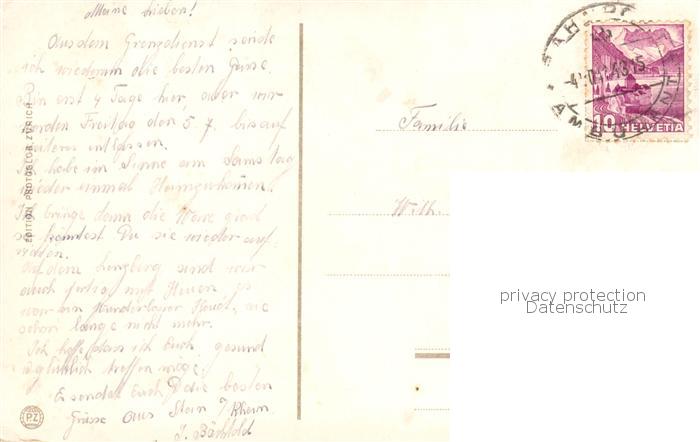 Meine Lieben!
Aus dem Grenzdienst sende
ich wiederum die besten Grüsse.
Bin erst 4 Tage hier, aber wir
werden Freitag den 5 7. bis auf
weiteres entlassen.
Ich habe im Sinne am Samstag
wieder einmal Heimzukommen.
Ich bringe dann die Ware grad
so könntest Du sie wieder auf-
Auf dem Lengberg sind wir
auch fertig mit Heuen, es
war ein Wunderbarer Heuet, wie
schon lange nicht mehr.
Ich hoffe dass ich Euch gesund
& glücklich treffen möge.
Es sendet Euch die besten
Grüsse aus Stein a/Rhein
J. Bächtold
EDITION PHOTOGLOB, ZÜRICH
PZ
Familie
Wilh.
10 HELVETIA
privacy protection
Datenschutz